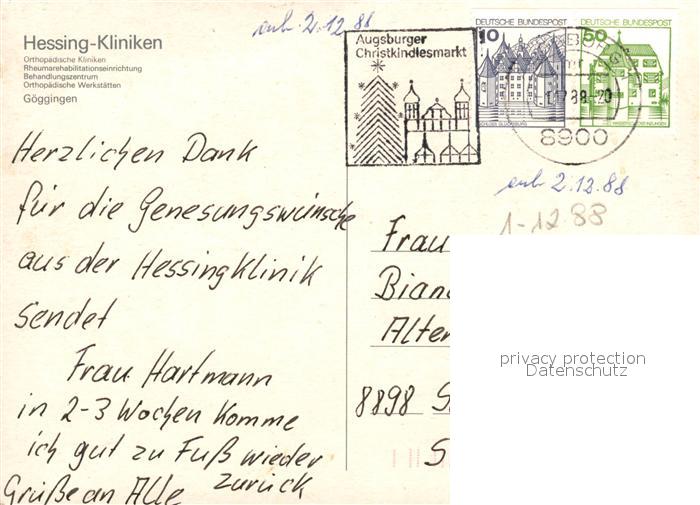 ank 2.12.88
Hessing-Kliniken
Orthopädische Kliniken
Rheumarehabilitationseinrichtung
Behandlungszentrum
Orthopädische Werkstätten
Göggingen
Augsburger
Christkindlesmarkt
DEUTSCHE BUNDESPOST
10
DEUTSCHE BUNDESPOST
50
8900
Herzlichen Dank
für die Genesungswünsche
aus der Hessingklinik
sendet
Frau Hartmann
in 2-3 Wochen komme
ich gut zu Fuß wieder
zurück
Grüße an Alle
ank 2.12.88
1-12.88
Frau
Bian
Alter
8898 S
S
privacy protection
Datenschutz